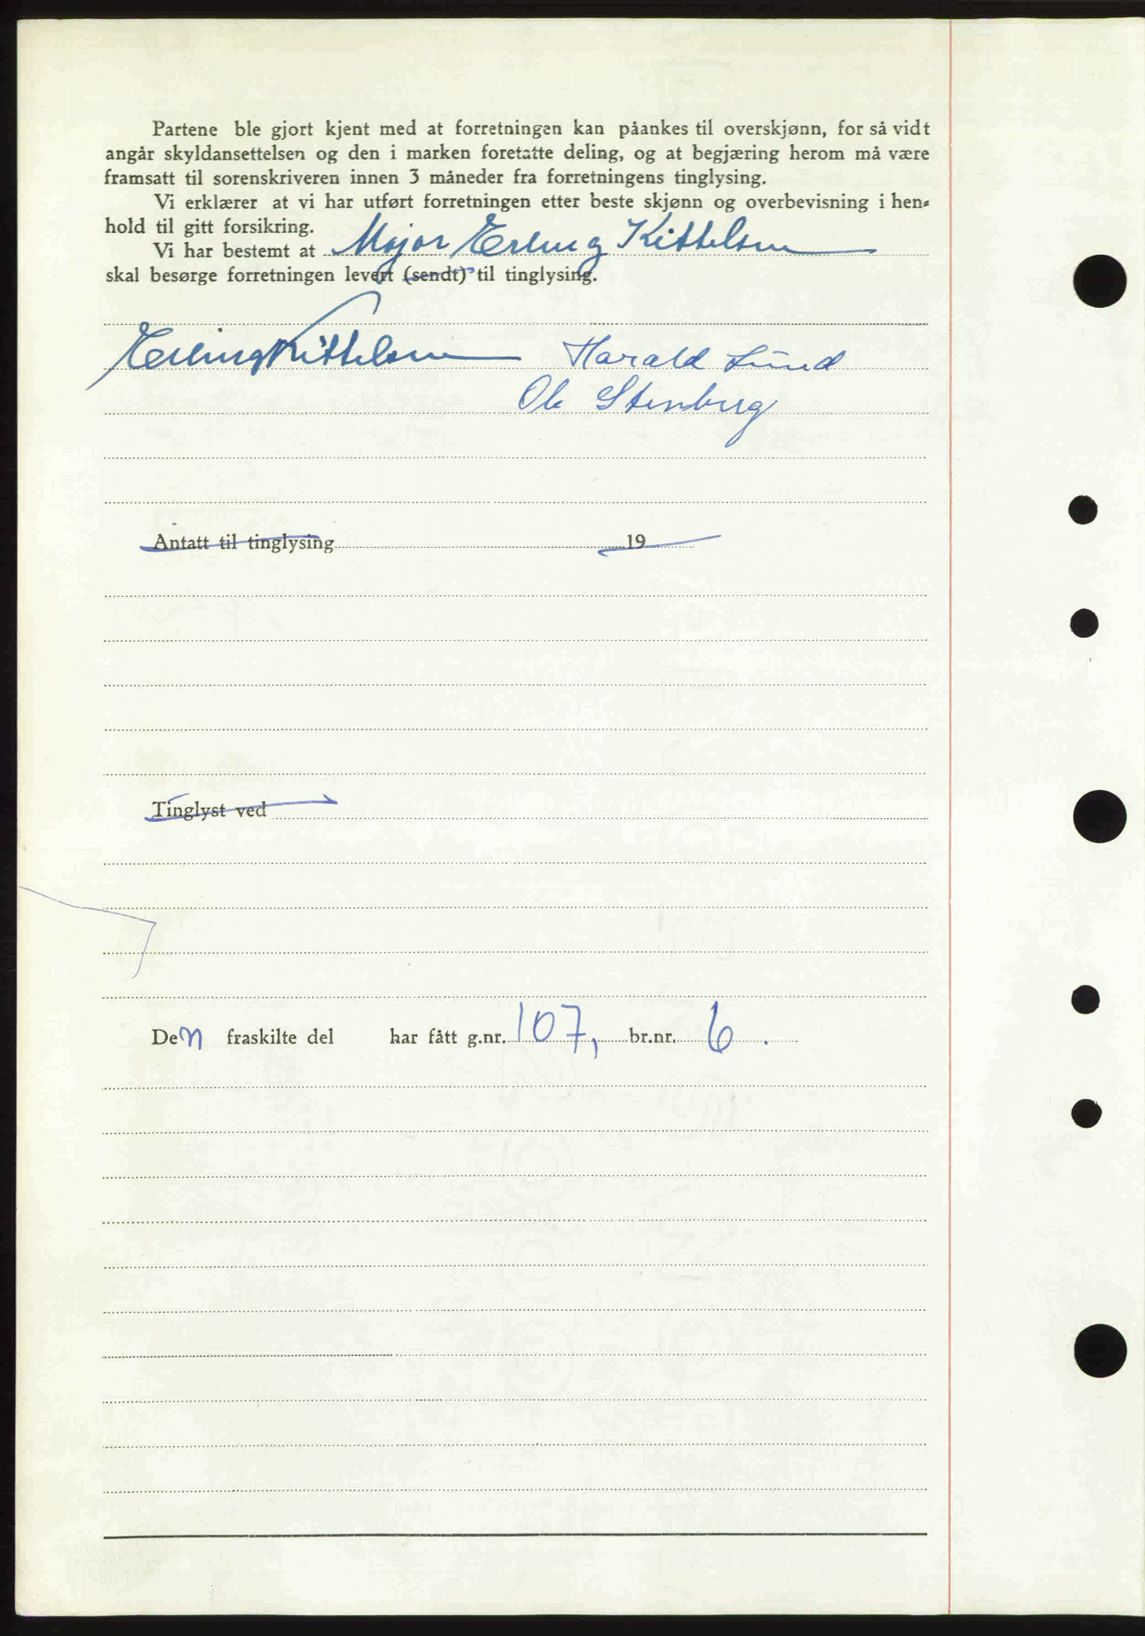 Partene ble gjort kjent med at forretningen kan påankes til overskjønn, for så vidt
angår skyldansettelsen og den i marken foretatte deling, og at begjæring herom må være
framsatt til sorenskriveren innen 3 måneder fra forretningens tinglysing.
Vi erklærer at vi har utført forretningen etter beste skjønn og overbevisning i hen-
hold til gitt forsikring.
Vi har bestemt at Major Erling Kittelsen
skal besørge forretningen levert (sendt) til tinglysing.
Erling Kittelsen Harald Lund
Ole Stenberg
Antatt til tinglysing 19
Tinglyst ved
Den fraskilte del har fått g.nr. 107, br.nr. 6.